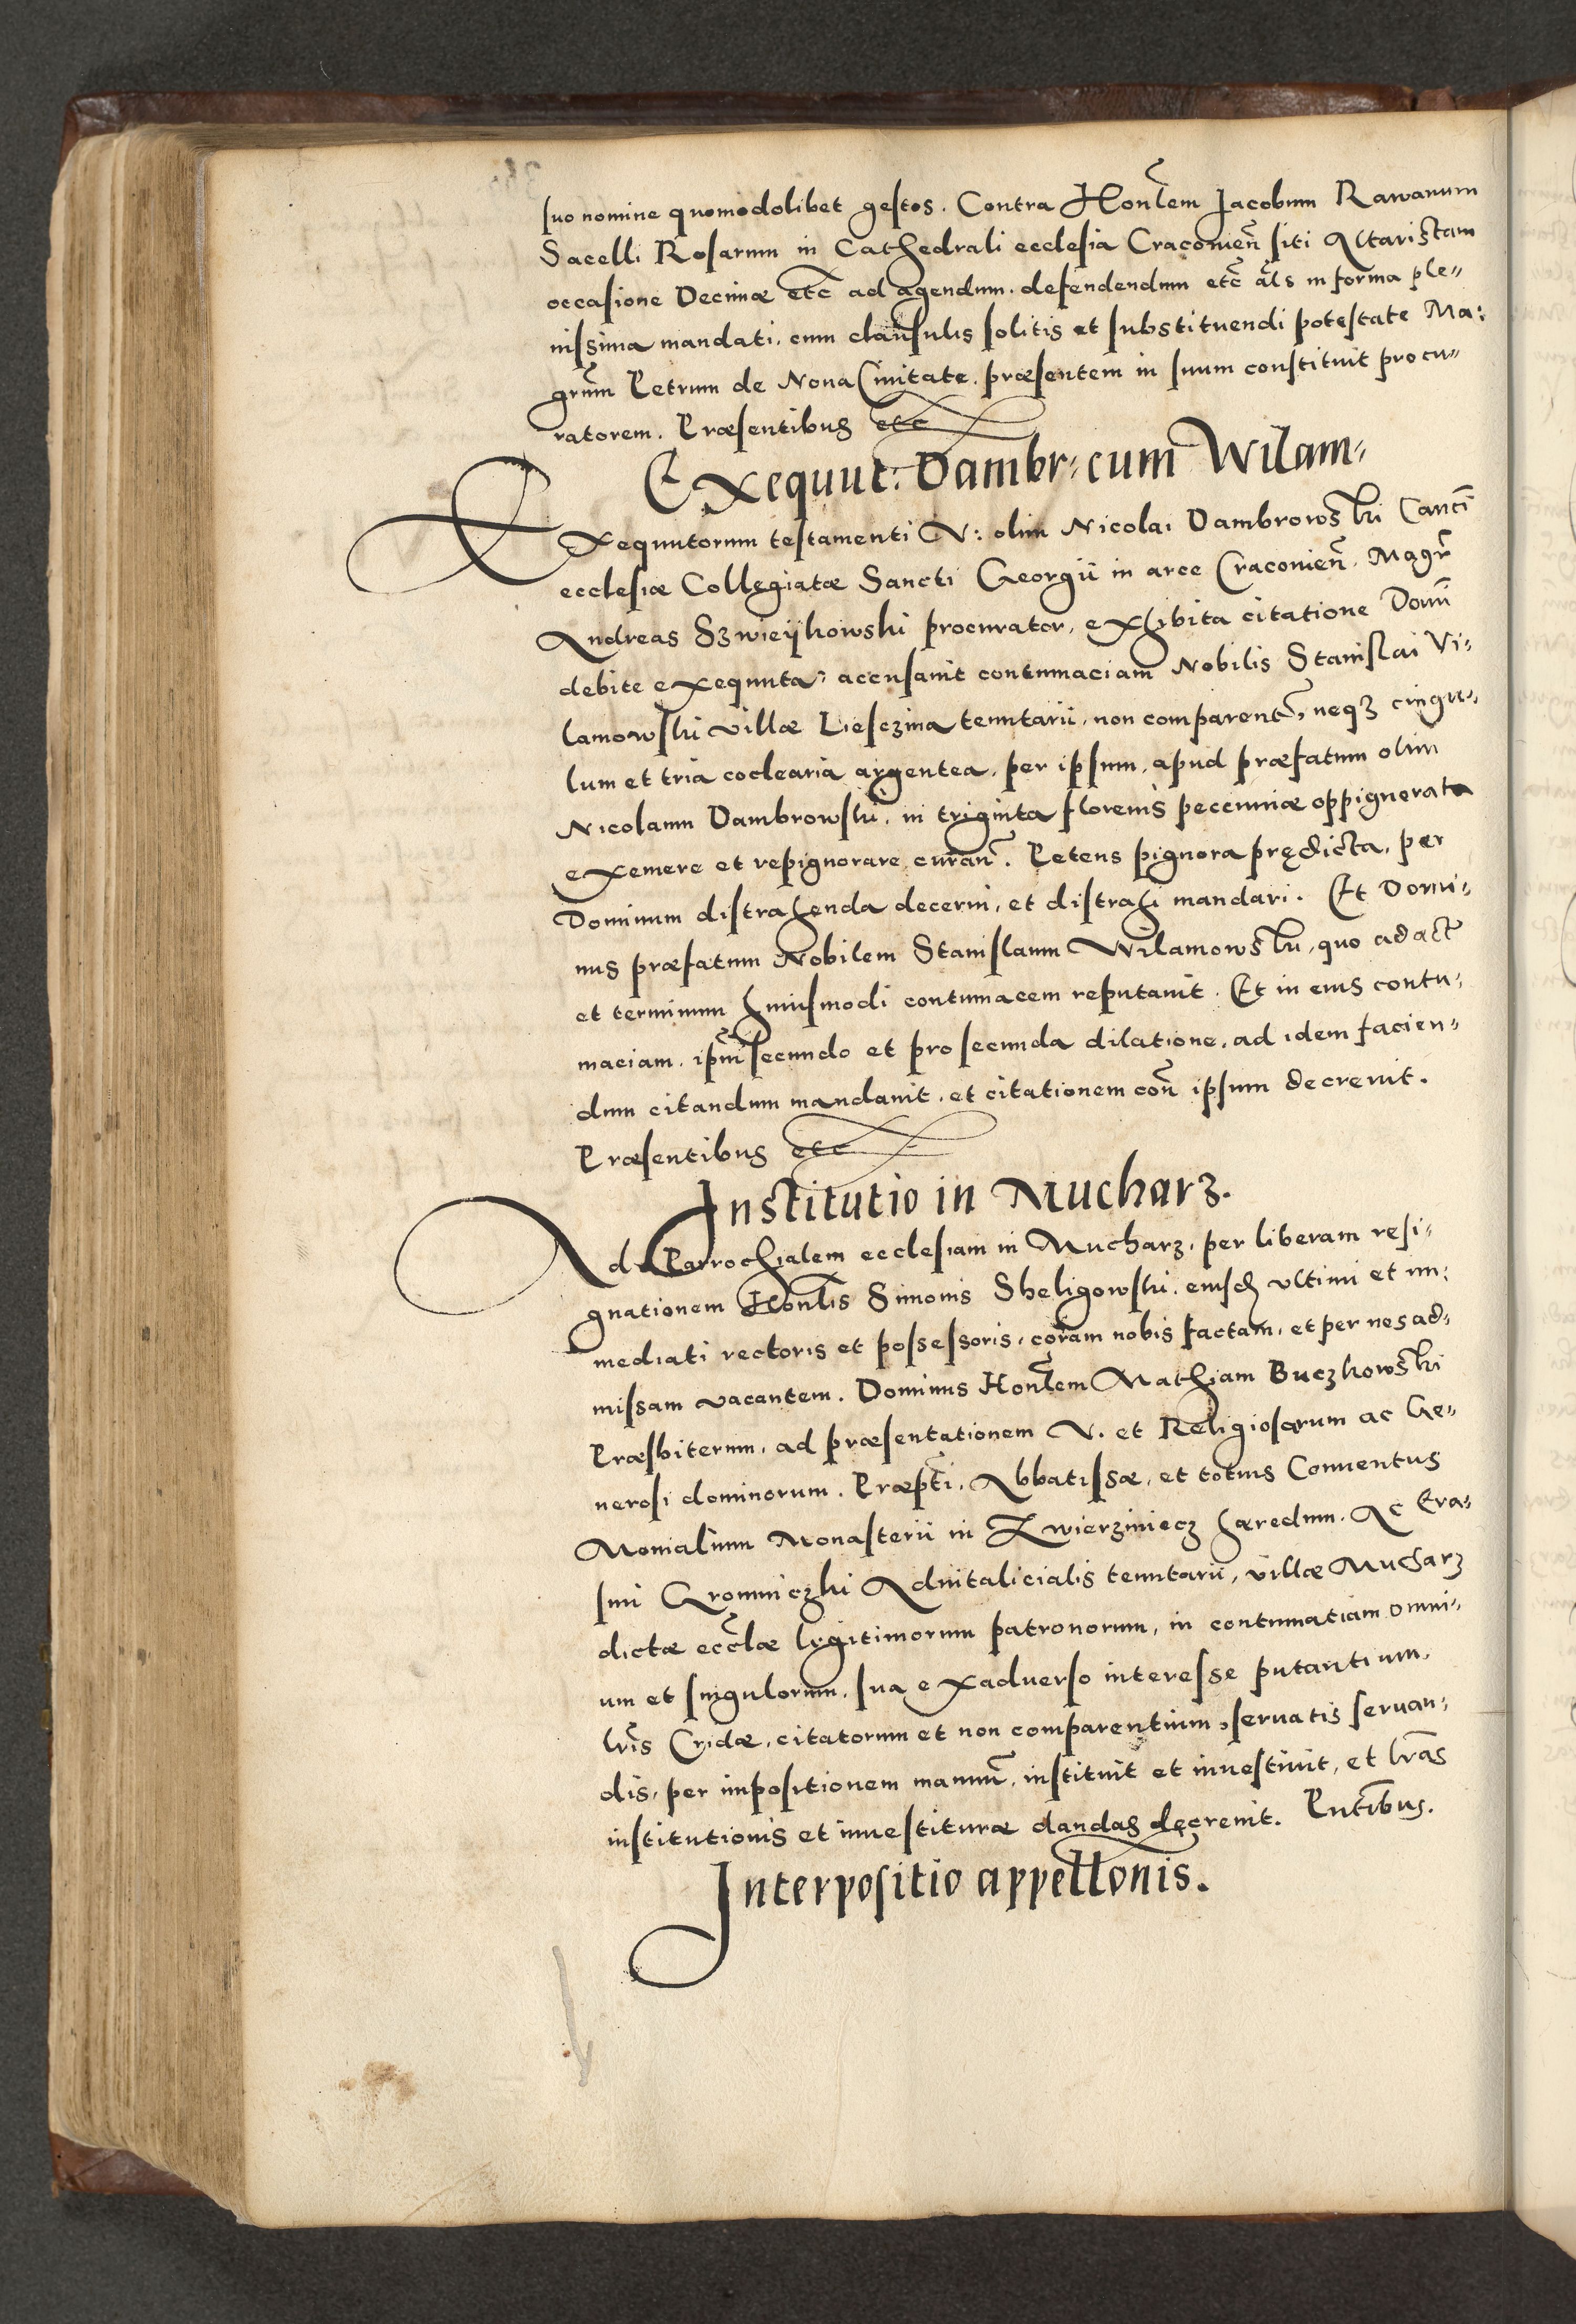 suo nomine quomodolibet gestos. Contra Hon̄lem Jacobum Rawanum
Sacelli Rosarum in Cathedrali ecclesia Cracovien̄ siti Altaristam
occasione Decimæ etc̄ ad agendum. defendendum etc̄ āls in forma ple„
nissima mandati. cum clausulis solitis et substituendi potestate Ma:
gr̄um Petrum de Nona Civitate. præsentem in suum constituit procu„
ratorem. Præsentibus etc
Exequut: Dambr: cum Wilam„
Exequutorum testamenti V: olim Nicolai Dambrowski Canc̄i
ecclesiæ Collegiatæ Sancti Georgii in arce Cracovien̄. Magr̄
Andreas Szwieÿkowski procurator, exhibita citatione Domī
debite exequuta: accusavit contumaciam Nobilis Stanislai Vi„
lamowski villæ Liesczina tenutarii, non comparent̄, neqz cingu„
lum et tria coclearia argentea, per ipsum, apud præfatum olim
Nicolaum Dambrowski, in triginta florenis pecuniæ oppignerata
exemere et repignorare curan̄. Petens pignora prędicta, per
Dominum distrahenda decerni, et distrahi mandari. Et Domi„
nus præfatum Nobilem Stanislaum Wilamowski, quo ad act̄
et terminum huiusmodi contumacem reputavit. Et in eius contu„
maciam. ip̄m secundo et pro secunda dilatione, ad idem facien„
dum citandum mandavit, et citationem con̄ ipsum decrevit.
Præsentibus etc
Institutio in Mucharz.
Ad Parrochialem ecclesiam in Mucharz, per liberam resi„
gnationem Hon̄lis Simonis Skeligowski. eiusd ultimi et im:
mediati rectoris et possessoris, coram nobis factam, et per nos ad„
missam vacantem. Dominus Hon̄lem Mathiam Buczkowski
Præsbiterum, ad præsentationem V. et Religiosarum ac Ge„
nerosi dominorum. Præpt̄i, Abbatissæ, et totius Conventus
Monialium Monasterii in Zwierziniecz hæredum. Ac Era„
smi Gromniczki Advitalicialis tenutarii, villæ Mucharz
dictæ ecc̄læ legitimorum patronorum, in contumatiam omni„
um et singulorum, sua exadverso interesse putantium,
lr̄is Cridæ, citatorum et non comparentium, servatis servan„
dis, per impositionem manuū, instituit et investivit, et lr̄as
institutionis et investituræ dandas decrevit. Pn̄tibus.
Interpositio appellōnis.